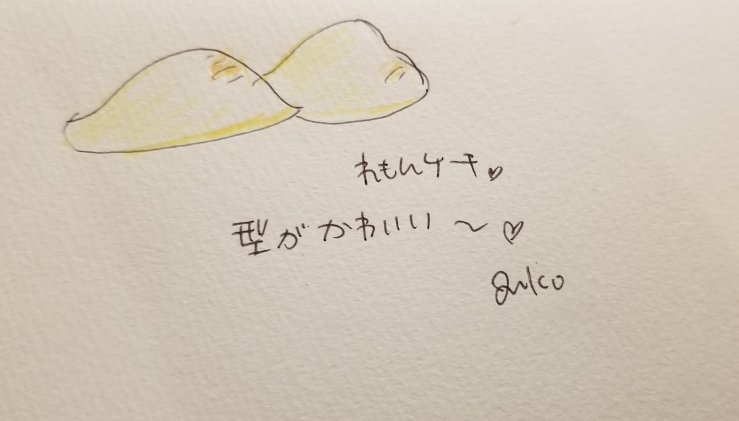 れもんケーキ♥
型がかわいい〜♡